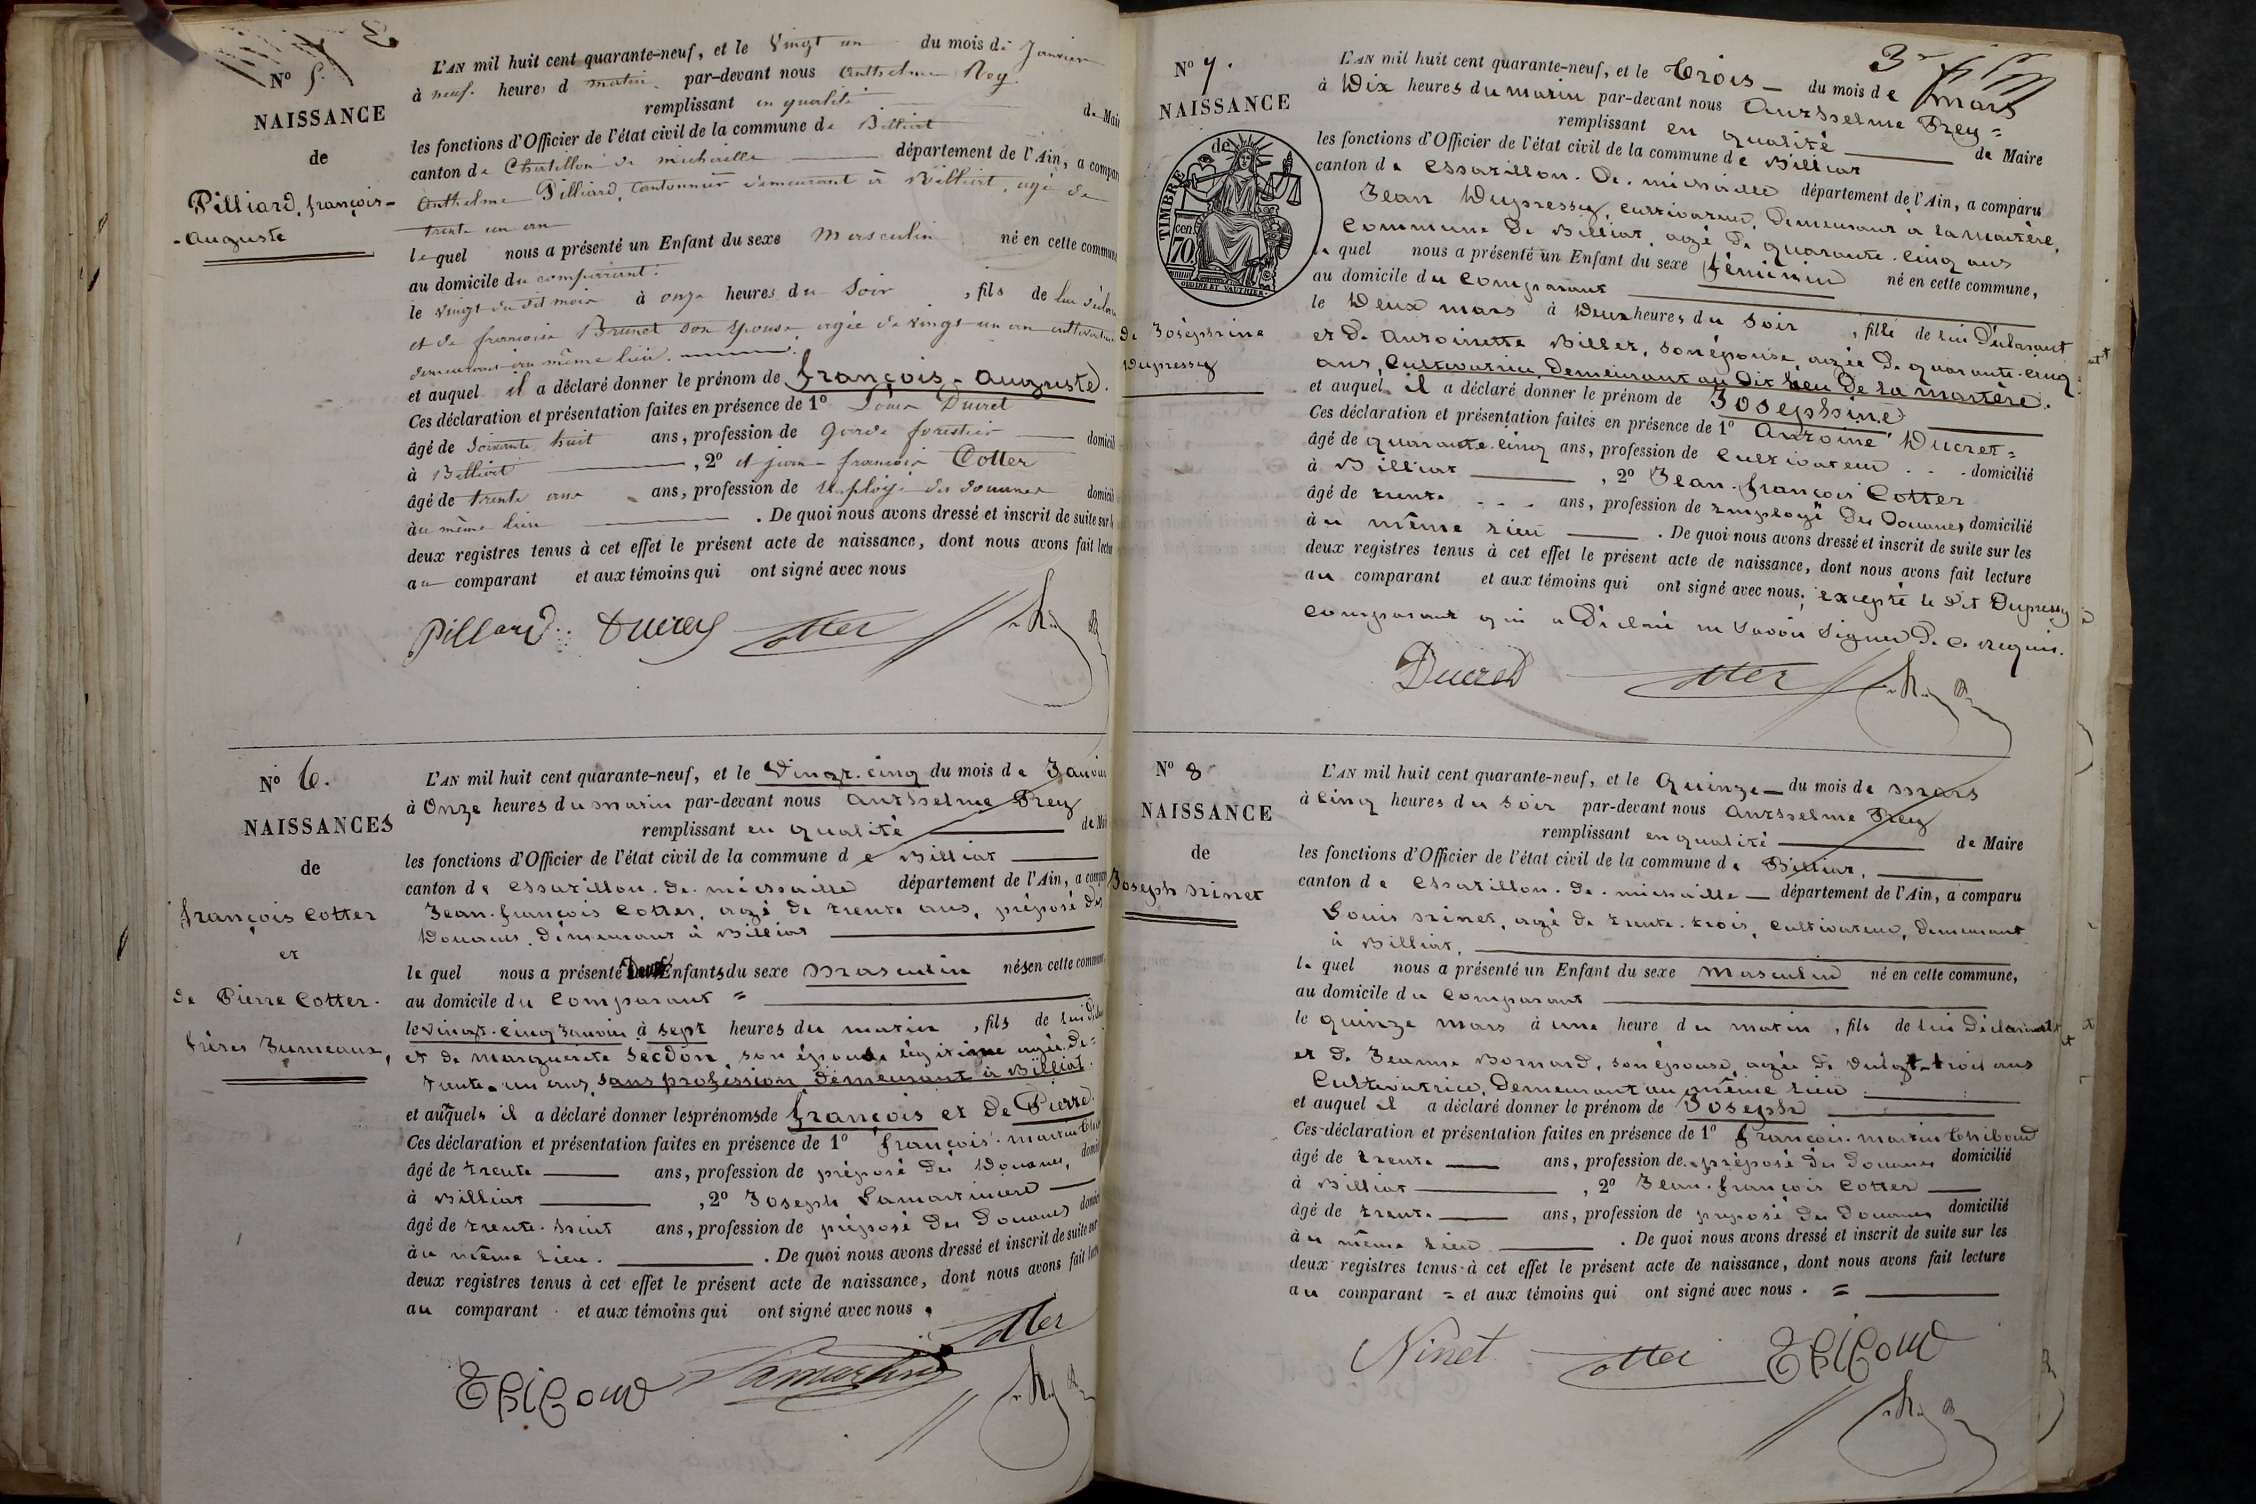 N° 5.
NAISSANCE
de
Pilliard, françois-
-auguste
L'AN mil huit cent quarante-neuf, et le Vingt un du mois de Janvier
à neuf heures d matin par-devant nous Anthelme Rey
remplissant en qualité de Mair
les fonctions d'Officier de l'état civil de la commune de Billiat
canton de Chatillon de michaille département de l'Ain, a compar
Anthelme Pilliard, Cantonnier demeurant à Billiat, agé de
trente un an
le quel nous a présenté un Enfant du sexe Masculin né en cette commune
au domicile du comparant.
le vingt du dit mois à onze heures du Soir, fils de lui déclar
et de françoise Brunet son épouse agée de vingt un an cultivatrice
demeurant au même lieu.
et auquel il a déclaré donner le prénom de françois-auguste.
Ces déclaration et présentation faites en présence de 1° Louis Ducret
âgé de Soixante huit ans, profession de Garde forestier domicil
à Billiat, 2° et jean-francois Cotter
âgé de trente ans ans, profession de Employé des douanes domicil
àu même lieu. De quoi nous avons dressé et inscrit de suite sur l
deux registres tenus à cet effet le présent acte de naissance, dont nous avons fait lectur
au comparant et aux témoins qui ont signé avec nous
Pillard Ducret Cotter
N° 6.
NAISSANCES
de
françois Cotter
et
de Pierre Cotter.
frères Jumeaux,
L'AN mil huit cent quarante-neuf, et le Vingt-cinq du mois de Janvier
à Onze heures du matin par-devant nous Anthelme Rey
remplissant en qualité de Mai
les fonctions d'Officier de l'état civil de la commune de Billiat
canton de Chatillon-de-michaille département de l'Ain, a compar
Jean-françois Cotter, agé de trente ans, préposé des
Douanes, demeurant à Billiat
le quel nous a présenté Deux Enfants du sexe Masculin nés en cette commune
au domicile du Comparant =
le vingt-cinq Janvier à sept heures du matin, fils de lui Décla
et de marguerite Secdon, son épouse légitime agée de =
trente-un ans, sans profession demeurant à Billiat.
et auxquels il a déclaré donner les prénoms de françois et de Pierre.
Ces déclaration et présentation faites en présence de 1° françois-martin Thib
âgé de trente ans, profession de préposé des Douanes, domi
à Billiat, 2° Joseph Lamartinière
âgé de trente-huit ans, profession de préposé des Douanes domici
àu même lieu. De quoi nous avons dressé et inscrit de suite sur
deux registres tenus à cet effet le présent acte de naissance, dont nous avons fait lect
au comparant et aux témoins qui ont signé avec nous.
Cotter
Thiboud Lamartini
N° 7.
NAISSANCE
de
TIMBRE
70 cen.
OUDINE ET VAUTHIER
de Joséphine
Dupressy
L'AN mil huit cent quarante-neuf, et le trois du mois de mars
à Dix heures du matin par-devant nous Anthelme Rey =
remplissant en qualité de Maire
les fonctions d'Officier de l'état civil de la commune de Billiat
canton de Chatillon-de-michaille département de l'Ain, a comparu
Jean Dupressy, cultivateur, demeurant à la martère,
Commune de Billiat, agé de quarante-cinq ans
le quel nous a présenté un Enfant du sexe féminin né en cette commune,
au domicile du Comparant
le Deux mars à Deux heures du Soir, fille de lui Déclarant
et de Antoinette Billet, son épouse, agée de quarante-cinq
ans, Cultivatrice, Demeurant au dit lieu de la martère.
et auquel il a déclaré donner le prénom de Joséphine
Ces déclaration et présentation faites en présence de 1° Antoine Ducret =
âgé de quarante-cinq ans, profession de Cultivateur domicilié
à Billiat, 2° Jean-françois Cotter
âgé de trente ans, profession de Employé des Douanes domicilié
àu même lieu. De quoi nous avons dressé et inscrit de suite sur les
deux registres tenus à cet effet le présent acte de naissance, dont nous avons fait lecture
au comparant et aux témoins qui ont signé avec nous, excepté le dit Dupressy
Comparant qui a Déclaré ne Savoir Signer De ce requis.
Ducret Cotter
N° 8
NAISSANCE
de
Joseph Ninet
L'AN mil huit cent quarante-neuf, et le Quinze du mois de Mars
à Cinq heures du Soir par-devant nous Anthelme Rey
remplissant en qualité de Maire
les fonctions d'Officier de l'état civil de la commune de Billiat,
canton de Chatillon-de-michaille département de l'Ain, a comparu
Louis Ninet, agé de trente-trois, Cultivateur, Demeurant
à Billiat,
le quel nous a présenté un Enfant du sexe Masculin né en cette commune,
au domicile du Comparant
le quinze mars à une heure du matin, fils de lui Déclarant
et de Jeanne Bornard, son épouse, agée de vingt-trois ans
Cultivatrice, Demeurant au même lieu
et auquel il a déclaré donner le prénom de Joseph
Ces déclaration et présentation faites en présence de 1° françois-martin Thiboud
âgé de trente ans, profession de préposé des Douanes domicilié
à Billiat, 2° Jean-françois Cotter
âgé de trente ans, profession de préposé des Douanes domicilié
àu même lieu. De quoi nous avons dressé et inscrit de suite sur les
deux registres tenus à cet effet le présent acte de naissance, dont nous avons fait lecture
au comparant = et aux témoins qui ont signé avec nous. =
Ninet Cotter Thiboud